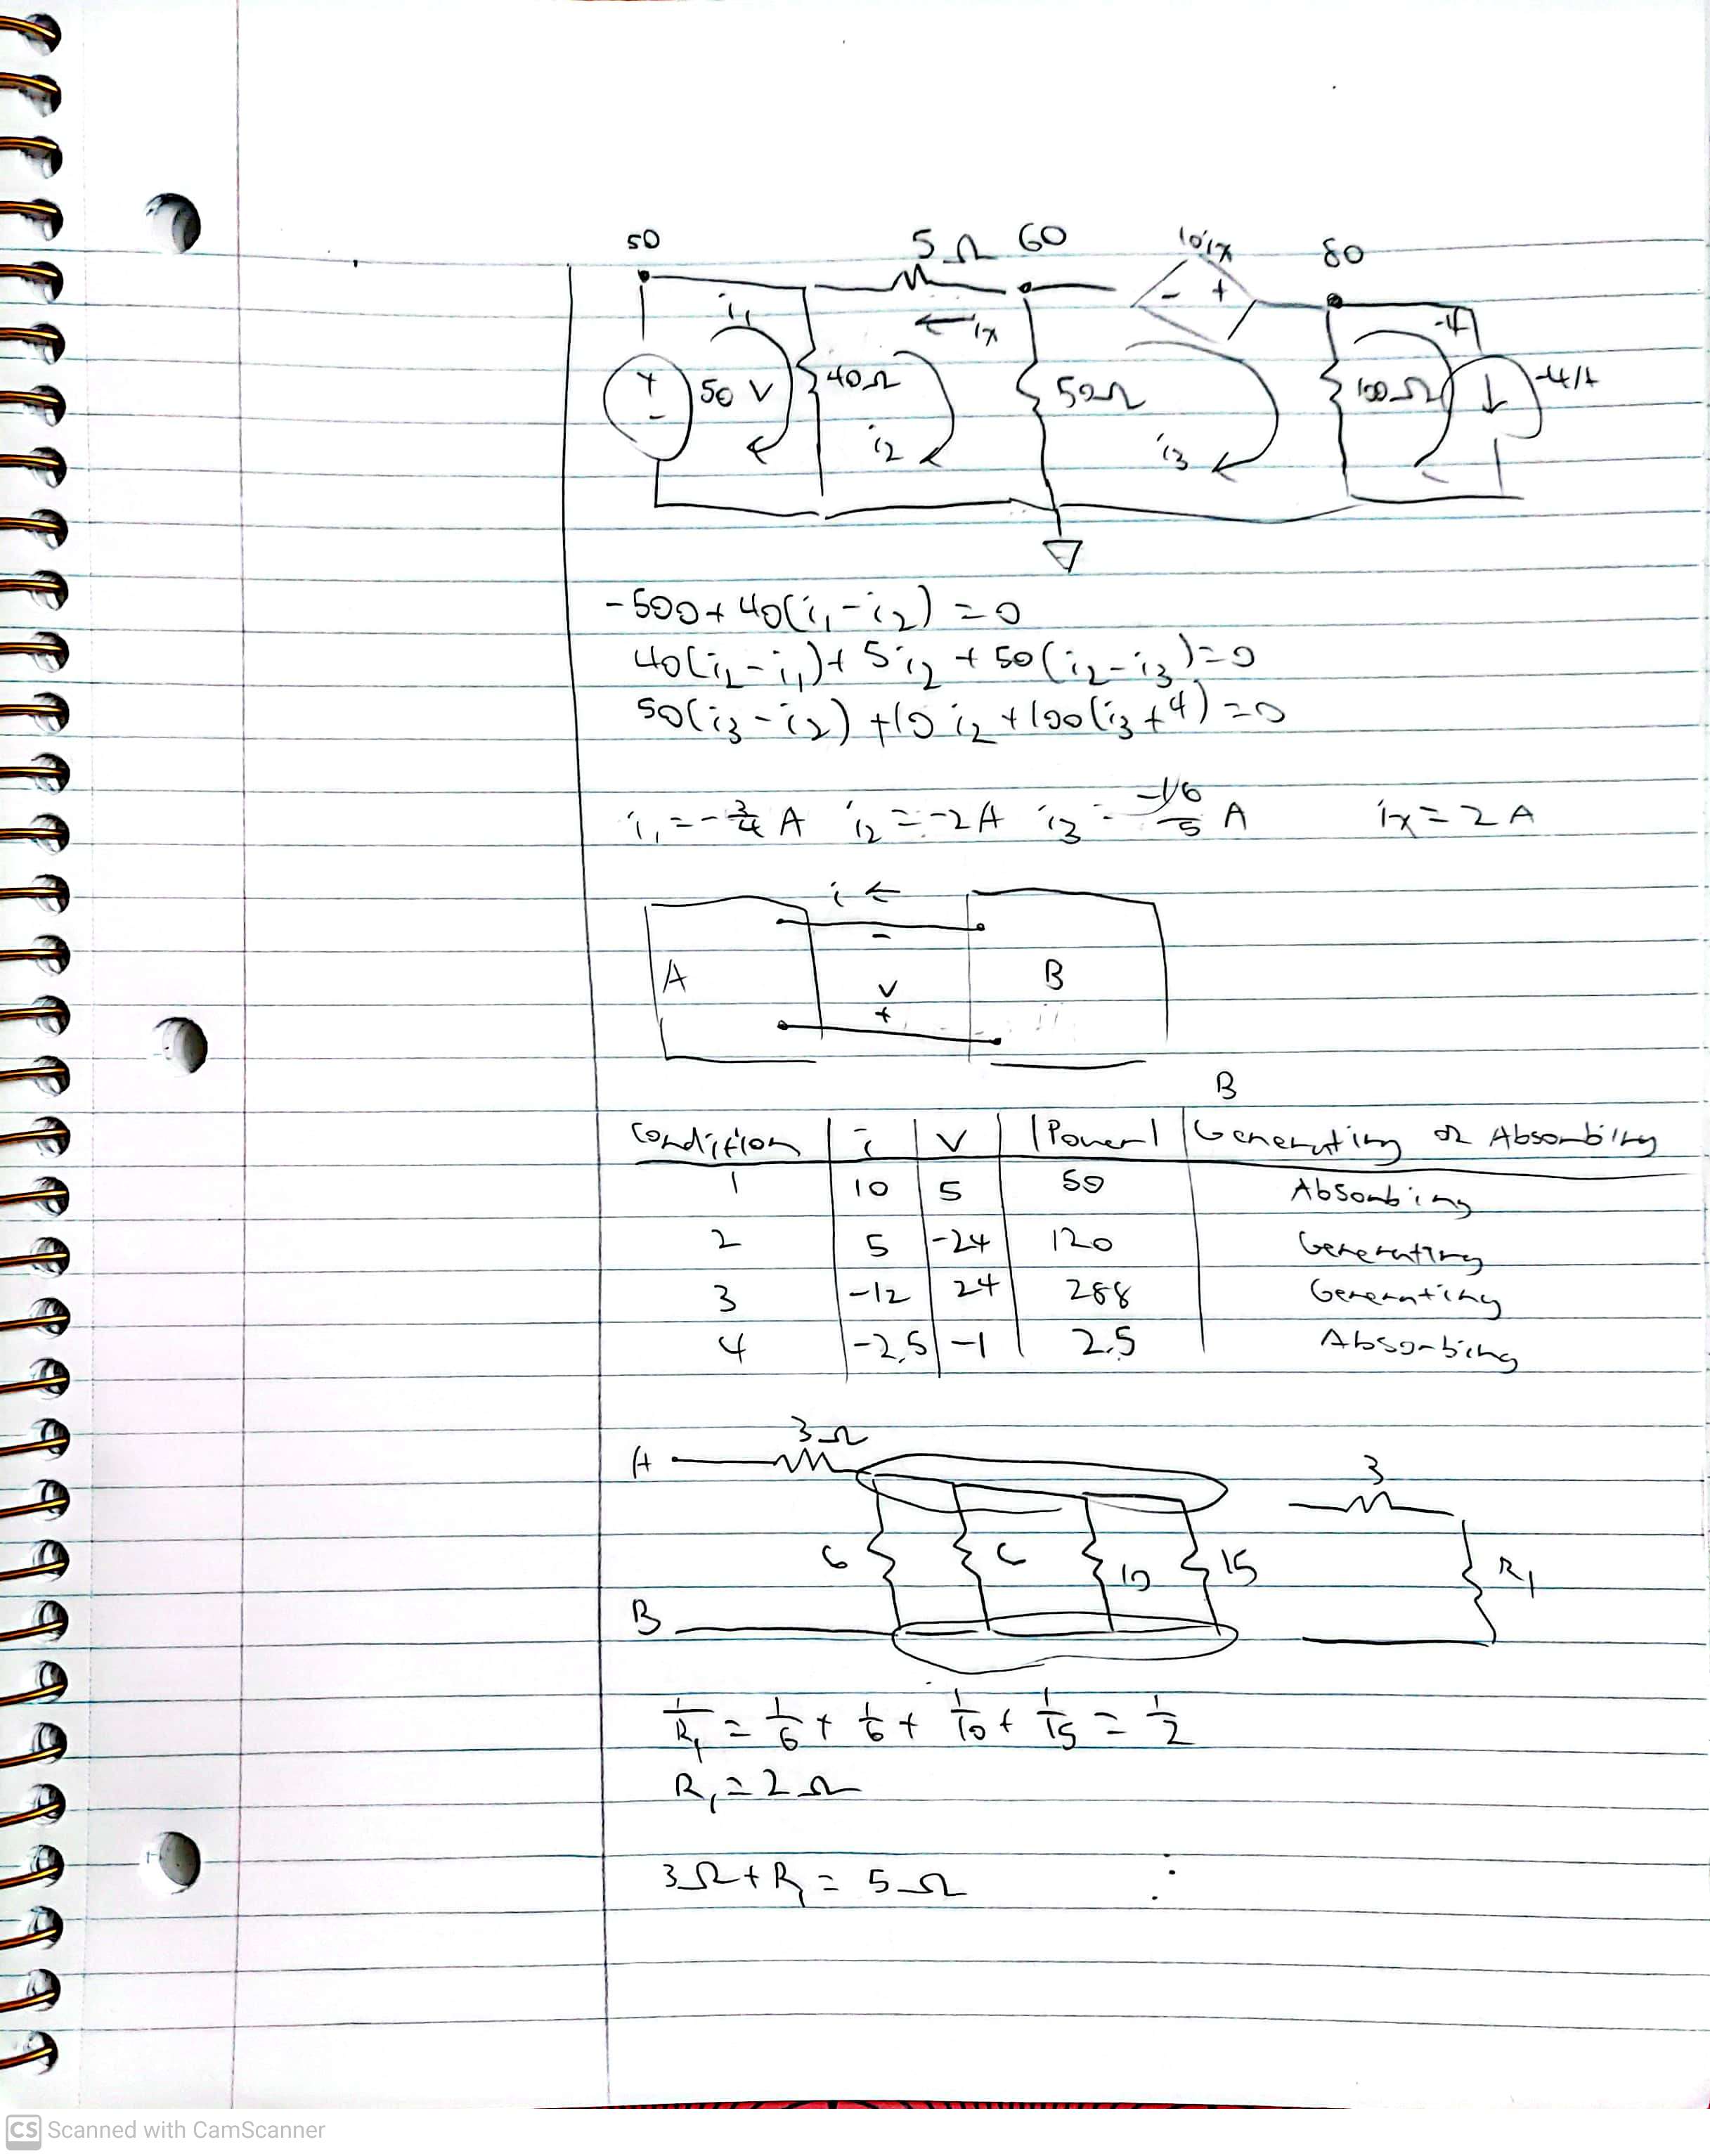 50 5Ω 60 10ix 80
i₁ ← ix -4
+ - 50 V 40Ω 50Ω - + 100Ω ↓ -4A
i₂ i₃
-500 + 40(i₁ - i₂) = 0
40(i₂ - i₁) + 5i₂ + 50(i₂ - i₃) = 0
50(i₃ - i₂) + 10 i₂ + 100(i₃ + 4) = 0
i₁ = -3/4 A i₂ = -2A i₃ = -16/5 A ix = 2 A
i ←
-
A v B
+
B
Condition i V |Power| Generating or Absorbing
1 10 5 50 Absorbing
2 5 -24 120 Generating
3 -12 24 288 Generating
4 -2.5 -1 2.5 Absorbing
3Ω
A 3
6 6 10 15 R₁
B
1/R₁ = 1/6 + 1/6 + 1/10 + 1/15 = 1/2
R₁ = 2Ω
3Ω + R₁ = 5Ω
CS Scanned with CamScanner